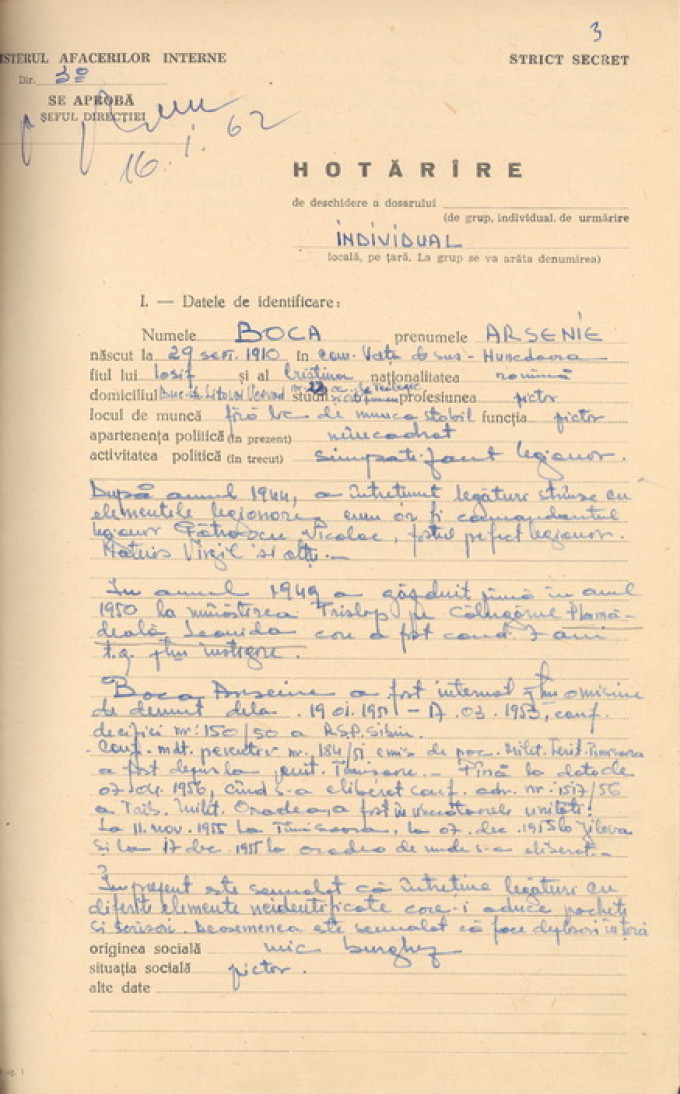 3
ISTERUL AFACERILOR INTERNE
STRICT SECRET
Dir. 3º
SE APROBĂ
ȘEFUL DIRECȚIEI
16.I.62
HOTĂRÎRE
de deschidere a dosarului
(de grup, individual, de urmărire
INDIVIDUAL
locală, pe țară. La grup se va arăta denumirea)
I. — Datele de identificare:
Numele BOCA prenumele ARSENIE
născut la 29 sept. 1910 în com. Vața de sus - Hunedoara
fiul lui Iosif și al Cristina naționalitatea romînă
domiciliul Buc. str. Litovoi Voevod nr. studii profesiunea pictor
locul de muncă fără loc de munca stabil funcția pictor
apartenența politică (în prezent) neîncadrat
activitatea politică (în trecut) simpatizant legionar.
După anul 1944, a întreținut legături strînse cu
elementele legionare cum ar fi comandantul
legionar Pătrașcu Nicolae, fostul prefect legionar
Mateiaș Virgil si alții.
In anul 1949 a găzduit pînă în anul
1950 la mînăstirea Prislop pe călugărul Plămă-
deală Leonida care a fost cond. 7 ani
t.g. ptr. instigare.
Boca Arsenie a fost internat ptr. omisiune
de denunț dela 19.01.1951 - 17.03.1953, conf.
deciziei nr. 150/50 a R.S.P. Sibiu.
Conf. mdt. nr. 184/51 emis de proc. Milit. Terit. Timisoara
a fost depus la penit. Timișoara. Pînă la data de
07.04.1956, cînd s-a eliberat conf. adr. nr. 1517/56
a Trib. Milit. Oradea, a fost în următoarele unități:
La 11. nov. 1955 la Timisoara, la 07. dec. 1955 la Jilava
și la 17 dec. 1955 la Oradea de unde s-a eliberat.
In prezent este semnalat că întreține legături cu
diferite elemente neidentificate care-i aduce pachete
si scrisori. Deasemenea este semnalat că face deplasări în țară
originea socială mic burghez
situația socială pictor.
alte date